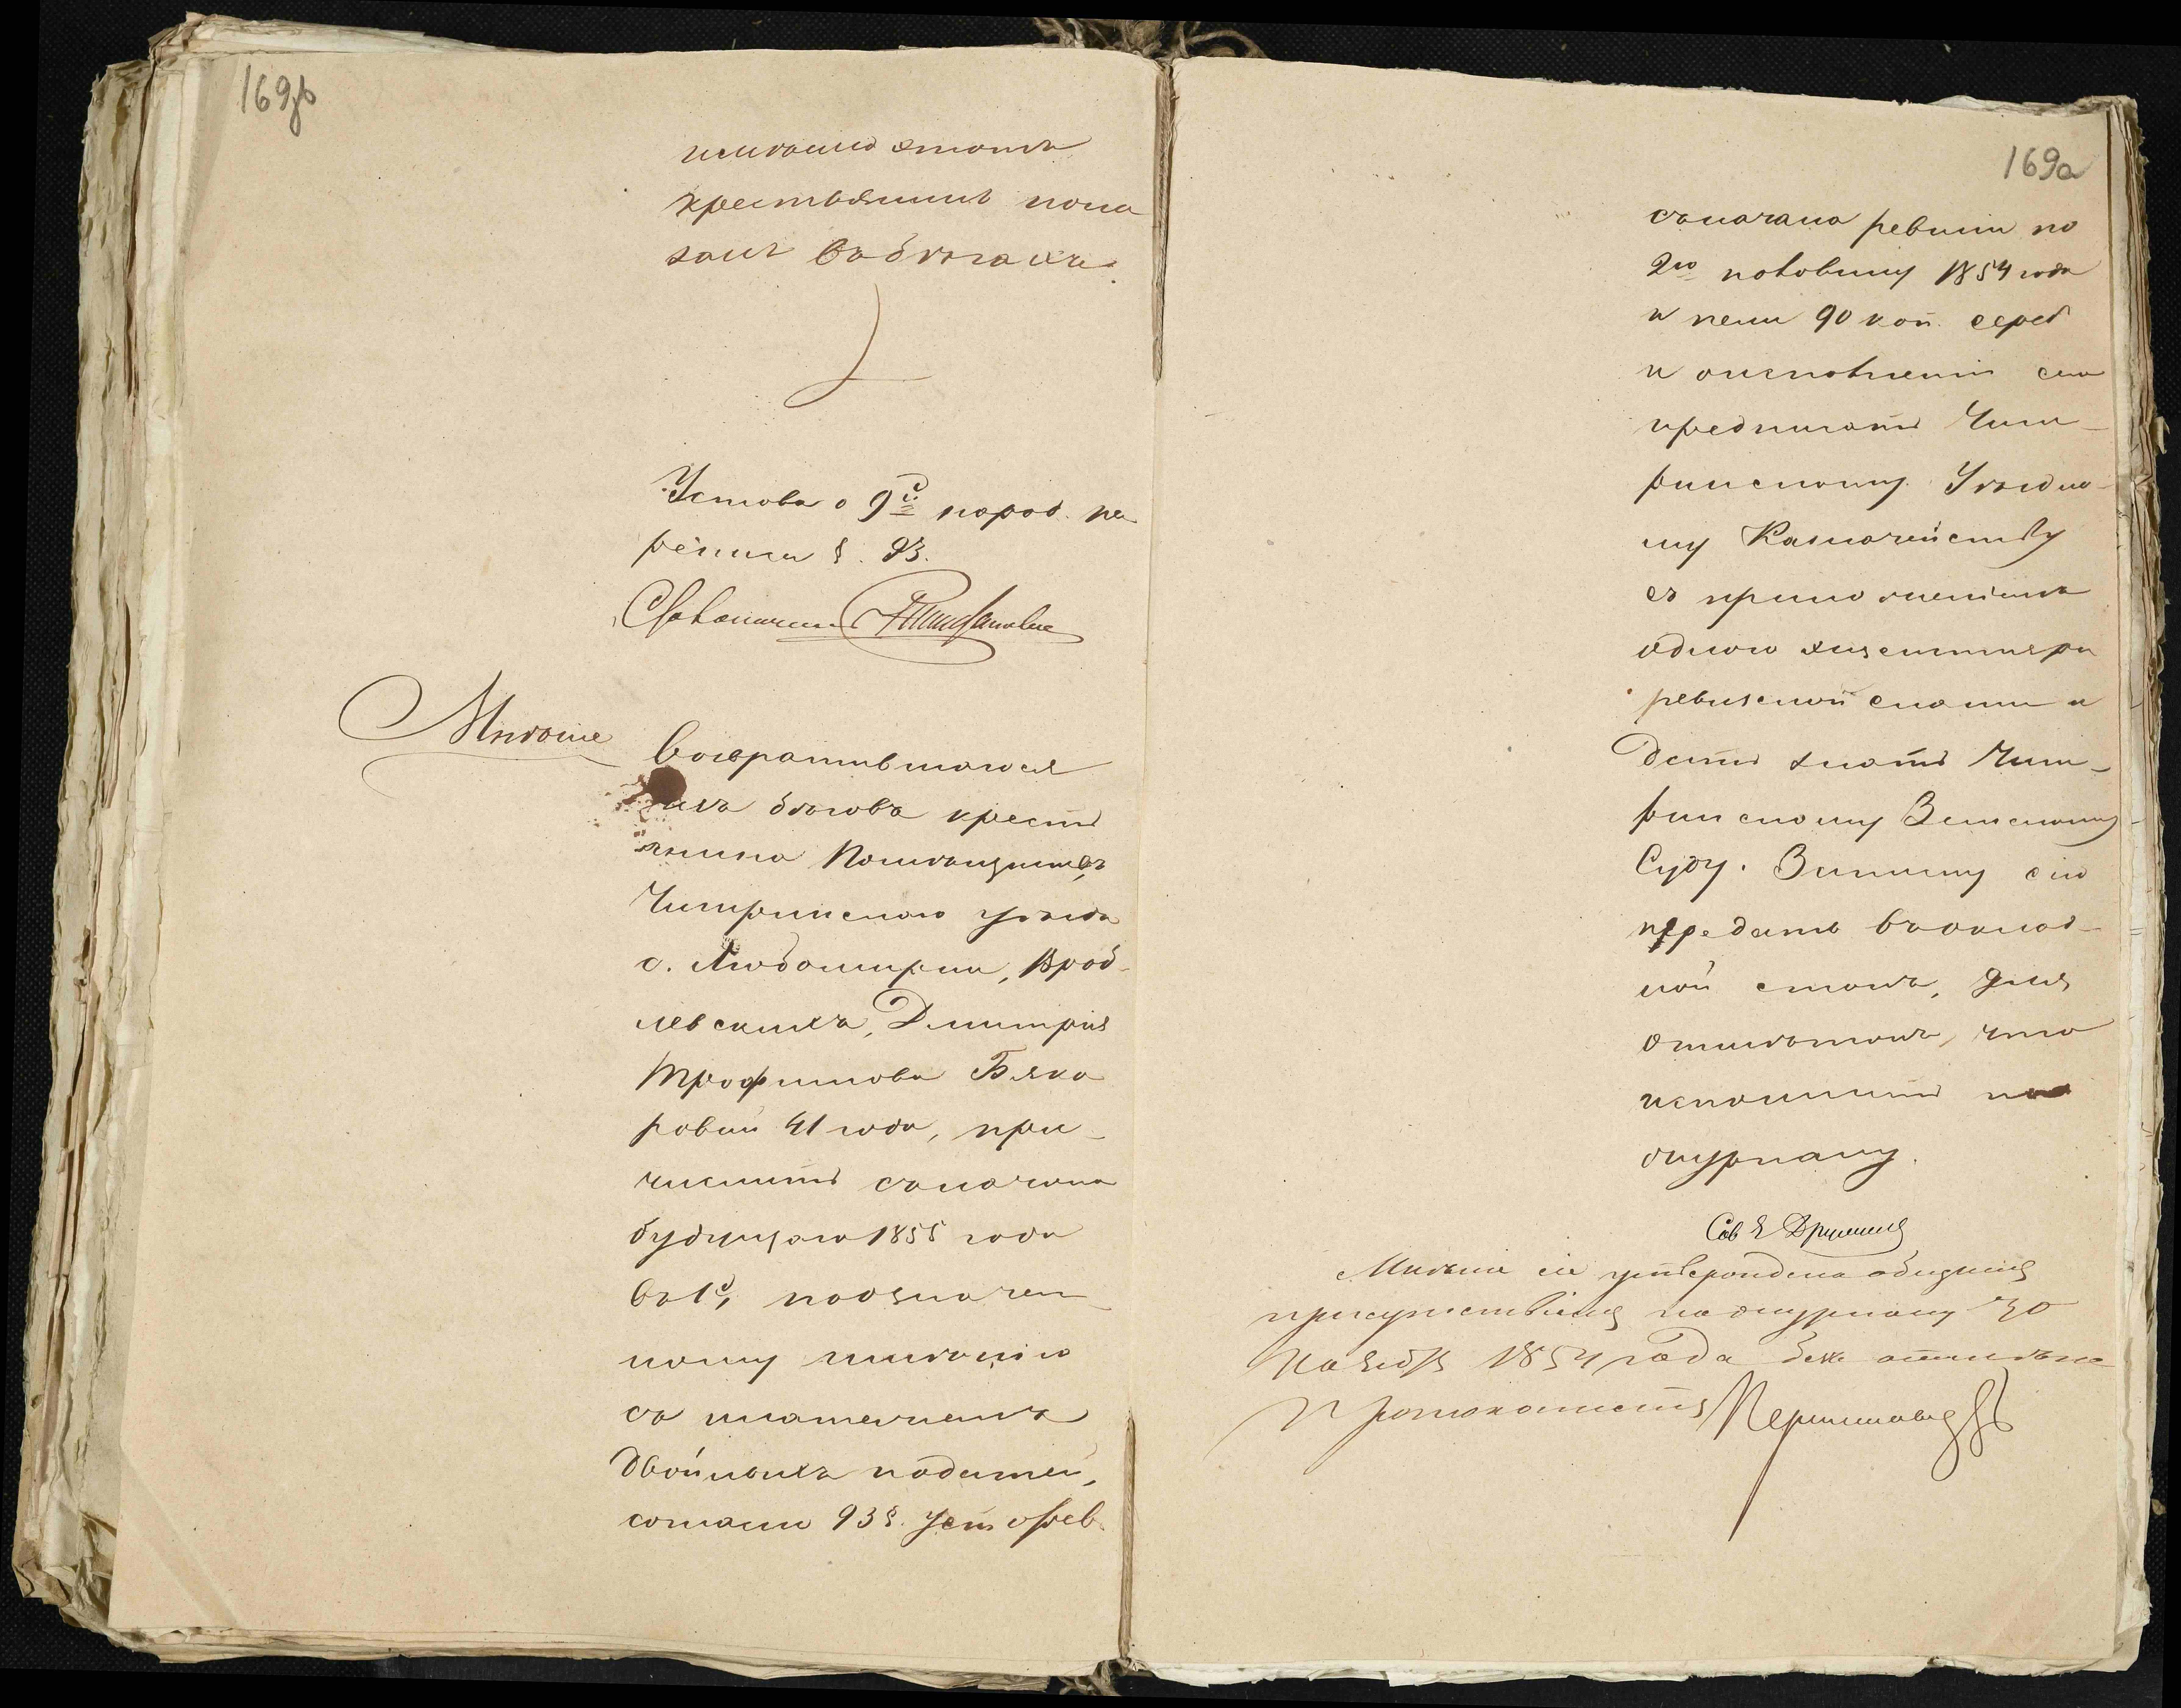 169зв
имѣнію этотъ
крестьянинъ пока
занъ въ бѣгахъ.
Устава о 9й народ. пе
реписи § 93.
Столоначал.
Мнѣніе
Возвратившагося
изъ бѣговъ кресть
янина Помѣщицъ,
Чигиринскаго уѣзда
с. Любомирки, Врод-
левскихъ, Димитрія
Трофимова Бѣжа
ровый 41 года, при-
числить съ начала
будущаго 1855 года
въ 1е, по означен
ному имѣнію
съ платежемъ
двойныхъ податей,
согласно 93 §. Уст. о рев.
169а
съ начала ревизіи по
2ю половину 1854 года
и пени 90 коп. сереб
и о исполненіи сего
предписать Чиги-
ринскому Уѣздно-
му Казначейству
съ приложеніемъ
одного экземпляра
ревизской сказки и
дать знать Чиги-
ринскому Земскому
Суду. Записку сію
передать въ оклад-
ной столъ, для
отмѣтокъ, что
исполнить по
журналу.
Сов
Мнѣніе сіе утверждено общимъ
присутствіемъ по журналу 30
Ноября 1854 года безъ отмѣны
Протоколистъ